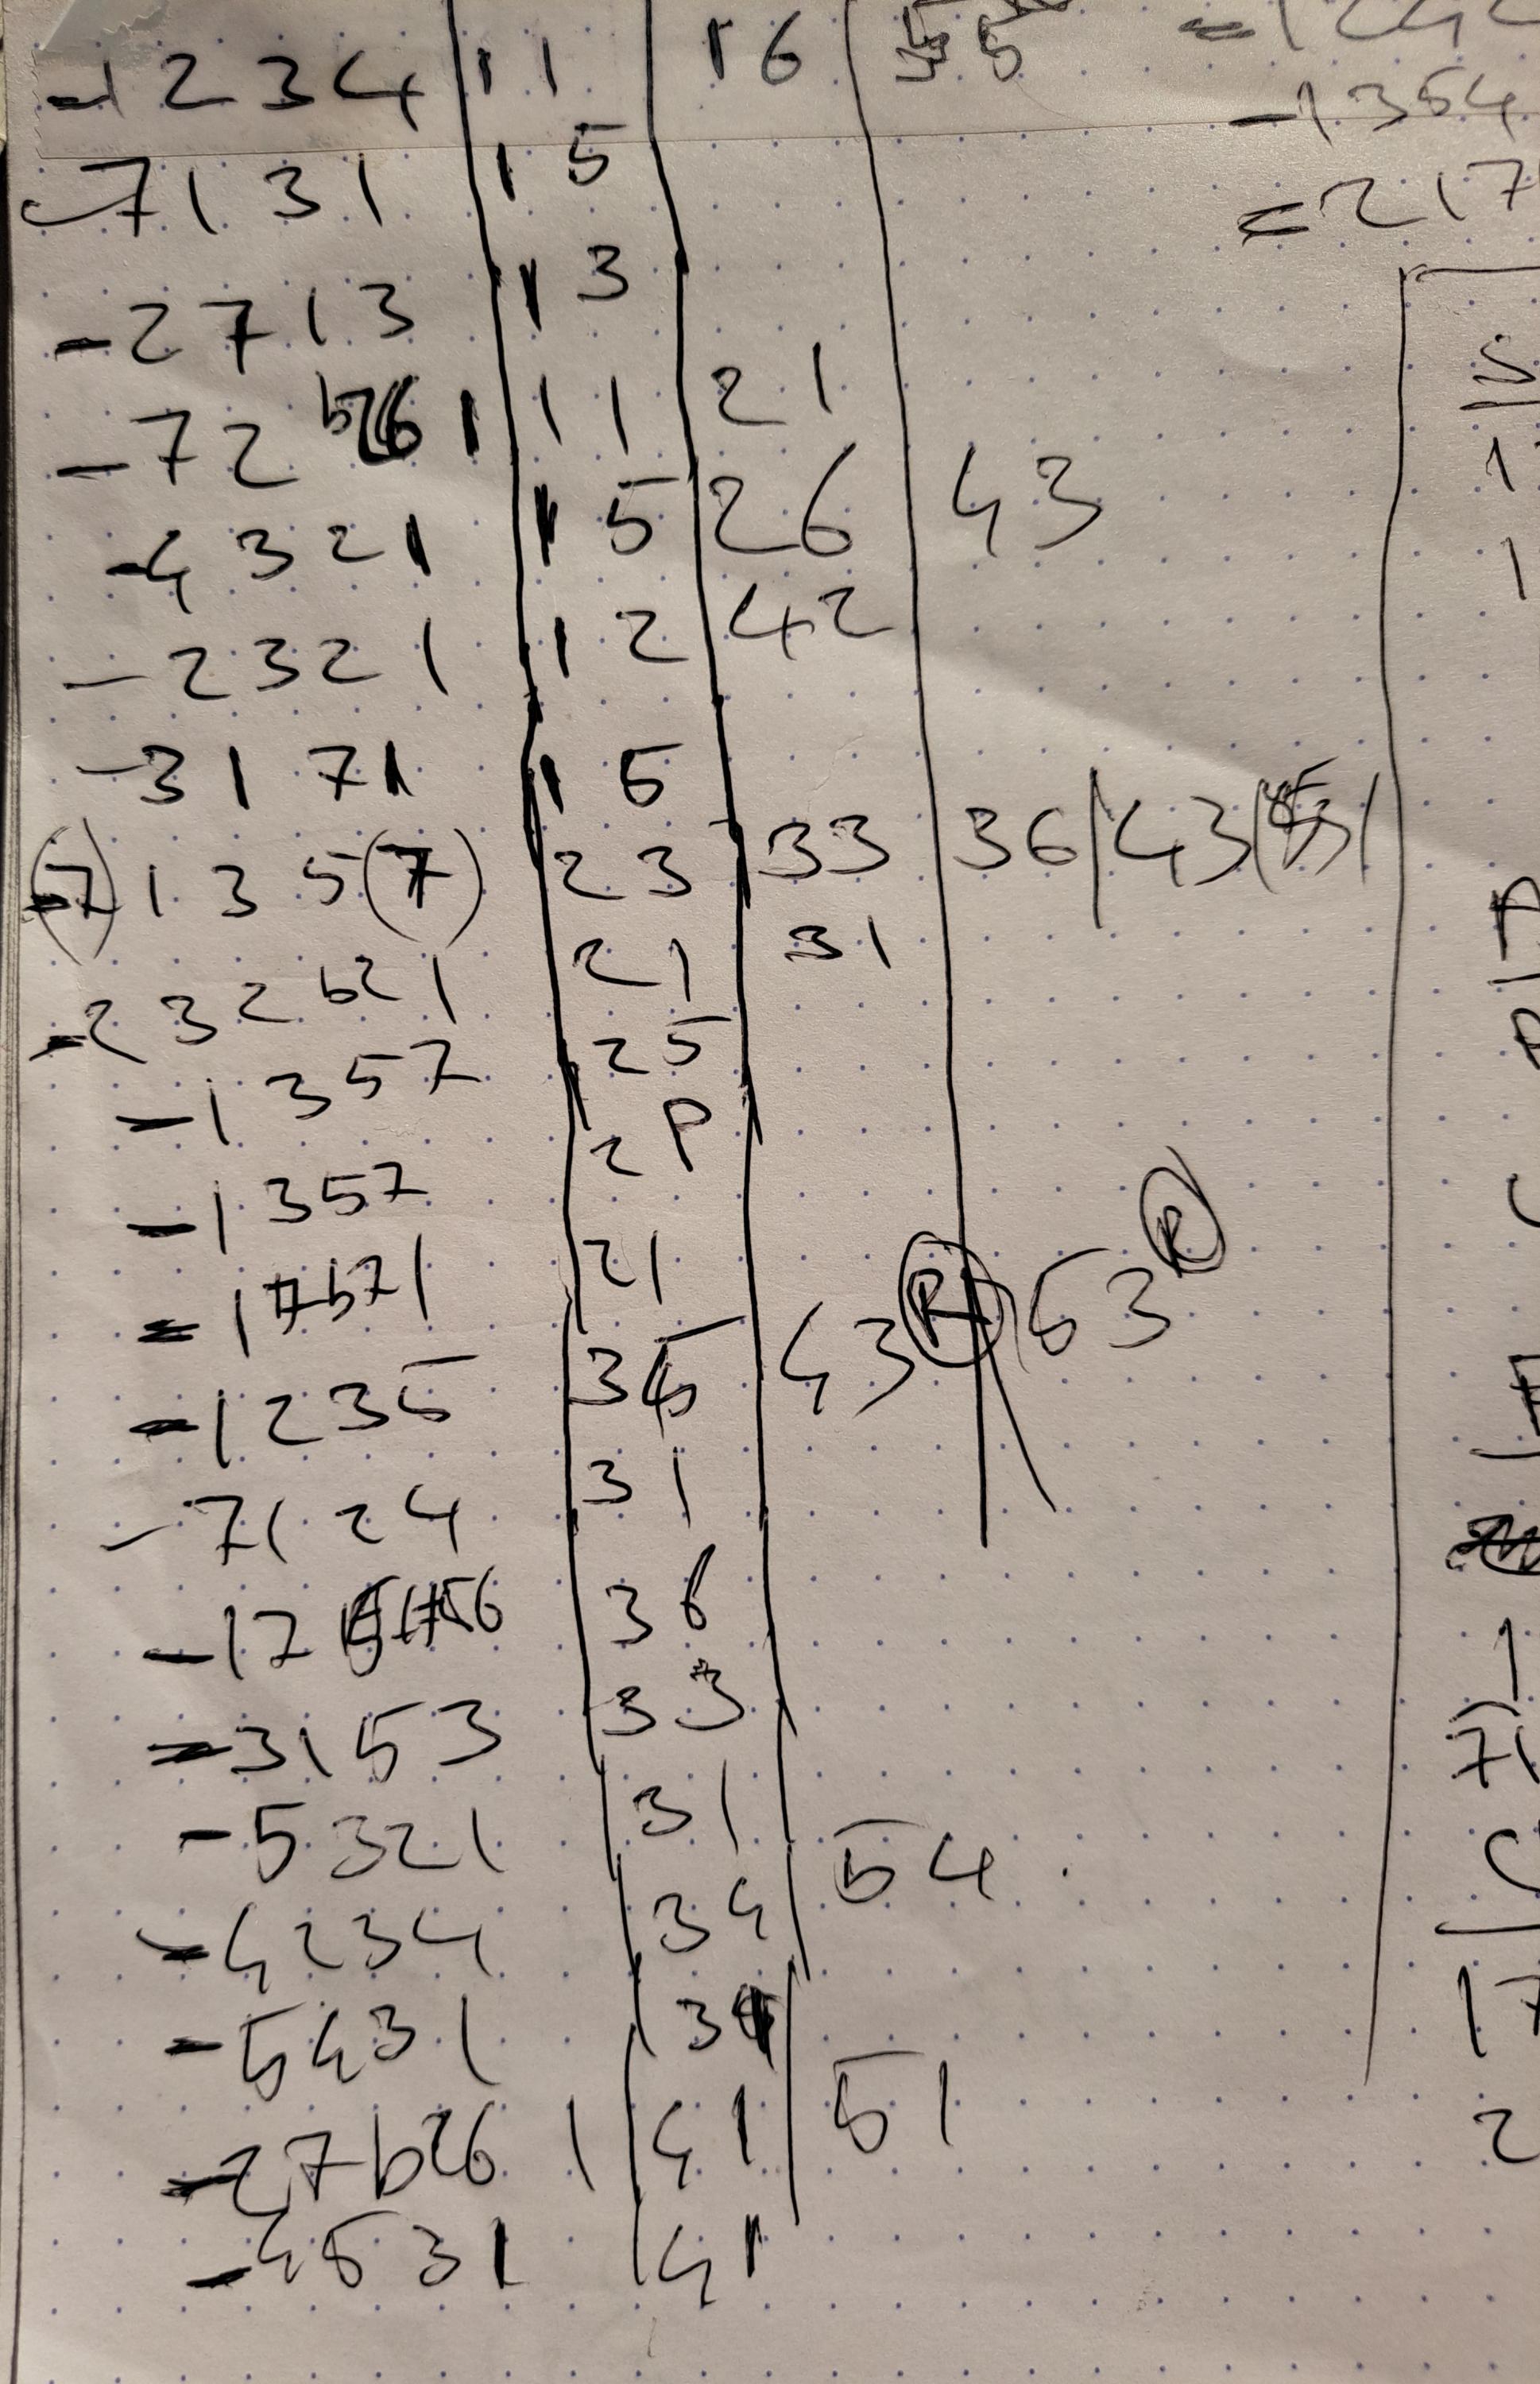 -1 2 3 4 | 1 1 | 1 6 |
-7 1 3 1 | 1 5
-2 7 1 3 | 1 3
-7 2 b26 1 | 1 1 | 2 1
-4 3 2 1 | 1 5 | 2 6 | 4 3
-2 3 2 1 | 1 2 | 4 2
-3 1 7 1 | 1 5
-(7) 1 3 5 (7) | 2 3 | 3 3 | 3 6 | 4 3 |
-2 3 2 b2 1 | 2 1 | 3 1
-1 3 5 7 | 2 5
-1 3 5 7 | 2 P
-1 7 b7 1 | 2 1
-1 2 3 5 | 3 5 | 4 3 Ⓡ | 5 3 Ⓡ
-7 1 2 4 | 3 1
-1 7 | 3 6
-3 1 5 3 | 3 3
-5 3 2 1 | 3 1
-4 2 3 4 | 3 4 | 5 4
-5 4 3 1 | 3
-2 7 b26 1 | 4 1 | 5 1
-4 5 3 1 | 4 1
-1 3 5 4
-2 1 7
S
1
1
1
7 1
1 7
2